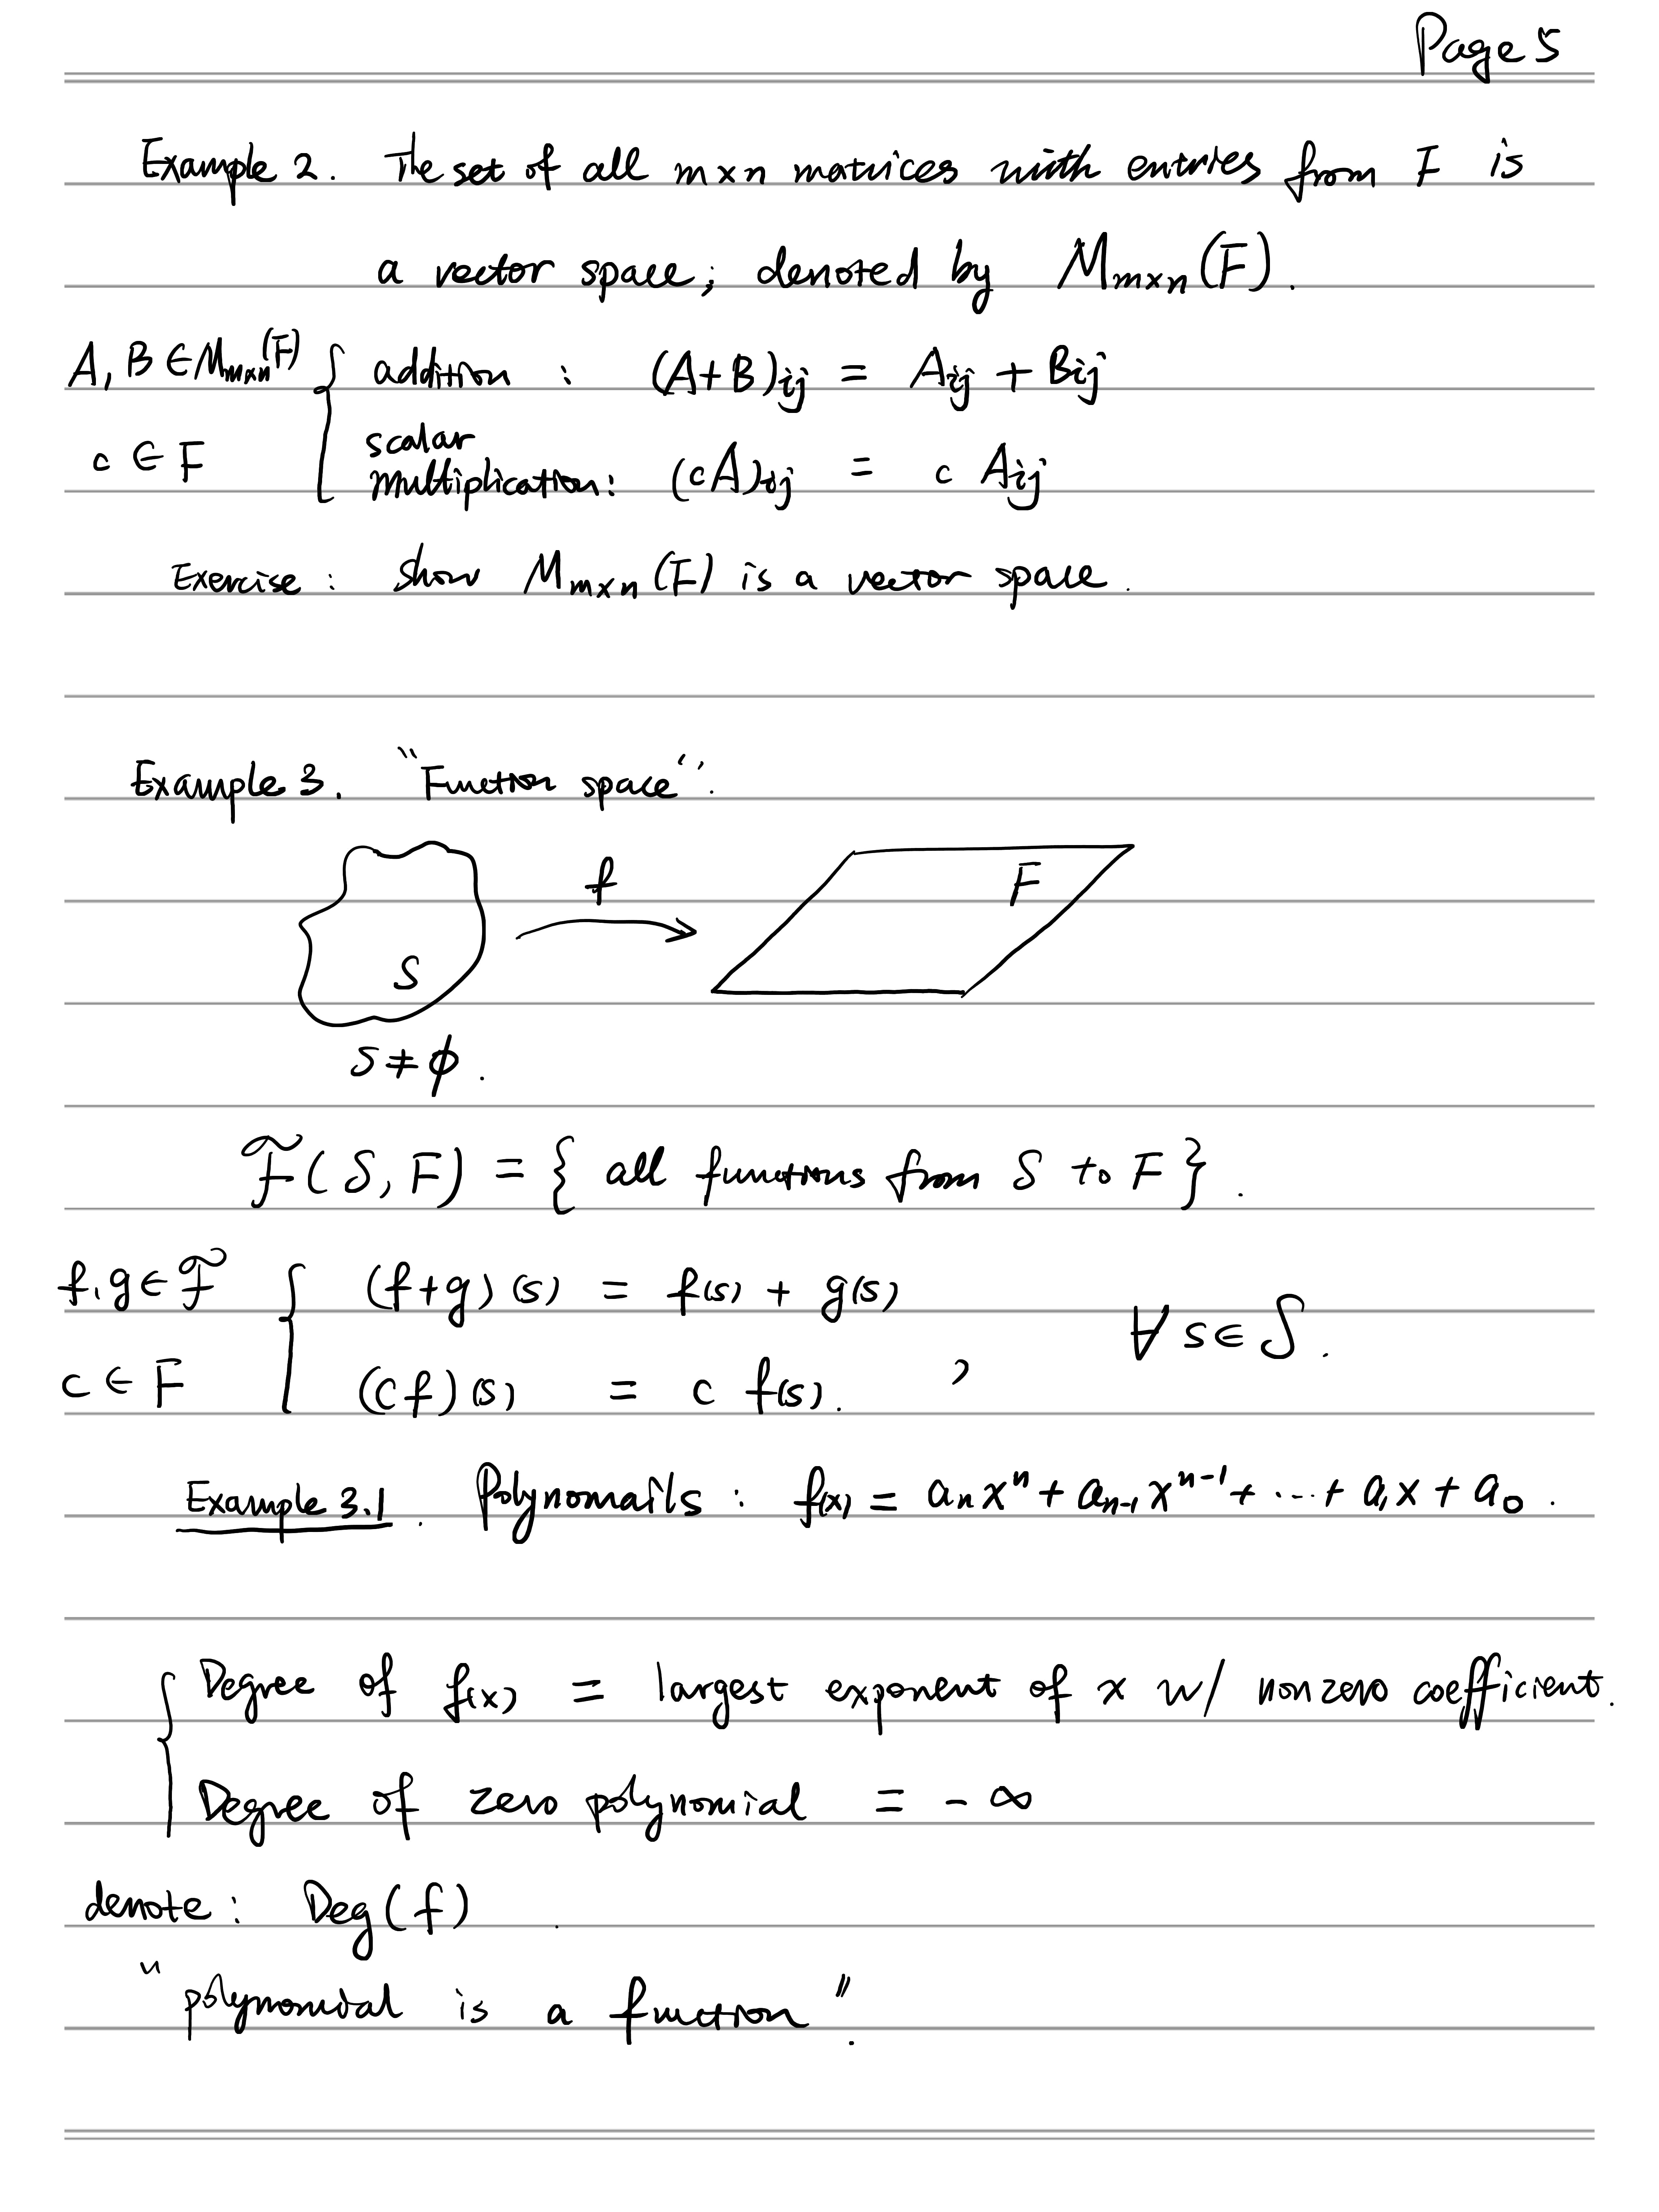 Page 5
Example 2. The set of all m×n matrices with entries from F is
a vector space; denoted by M_{m×n}(F).
A, B ∈ M_{m×n}(F) { addition : (A+B)_{ij} = A_{ij} + B_{ij}
c ∈ F scalar multiplication: (cA)_{ij} = c A_{ij}
Exercise: show M_{m×n}(F) is a vector space.
Example 3. "Function space".
f
F
S
S ≠ ϕ.
ℱ(S, F) = { all functions from S to F }.
f, g ∈ ℱ { (f+g)(s) = f(s) + g(s)
∀ s ∈ S.
c ∈ F (cf)(s) = c f(s). ,
Example 3.1. Polynomails : f(x) = a_n x^n + a_{n-1} x^{n-1} + ... + a_1 x + a_0.
{ Degree of f(x) = largest exponent of x w/ nonzero coefficient.
Degree of zero polynomial = -∞
denote: Deg(f).
"polynomial is a function".